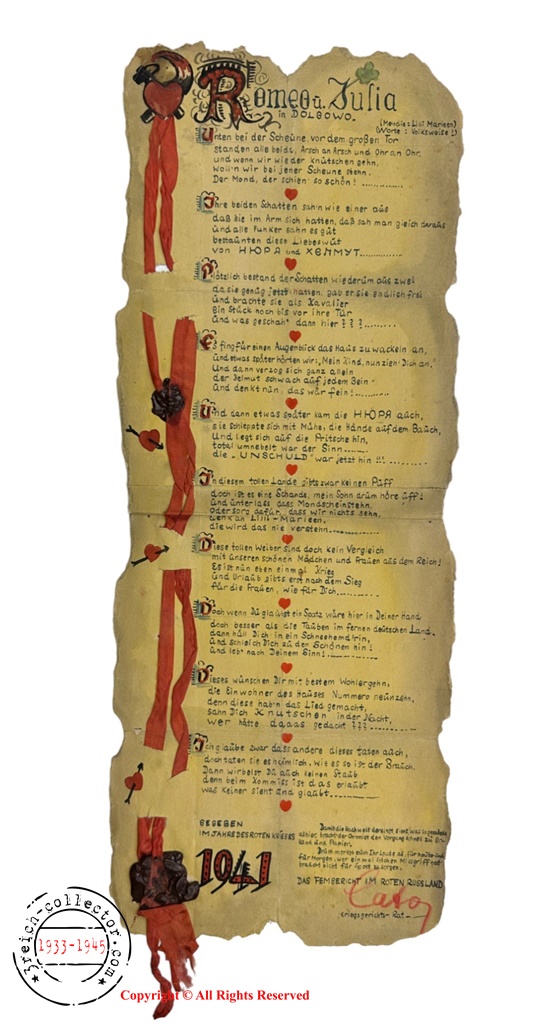 Romeo u. Julia
in DOLGOWO.
(Melodie: Lili Marleen)
(Worte: Volksweise!)
Unten bei der Scheune, vor dem großen Tor
standen alle beide, Arsch an Arsch und Ohr an Ohr,
und wenn wir wieder knutschen gehn,
woll'n wir bei jener Scheune stehn.
Der Mond, der schien so schön! ............
Ihre beiden Schatten sah'n wie einer aus
daß sie im Arm sich hatten, daß sah man gleich daraus
und alle Funker sahn es gut
bestaunten diese Liebeswut
von НЮРА und ХЕЛМУТ............
Plötzlich bestand der Schatten wiederum aus zwei
da sie genug jetzt hatten, gab er sie endlich frei
und brachte sie als Kavalier
Ein Stück noch bis vor ihre Tür
und was geschah dann hier ? ? ? .........
Es fing für einen Augenblick das Haus zu wackeln an,
und etwas später hörten wir: „Mein Kind, nun zieh Dich an."
Und dann verzog sich ganz allein
der Helmut schwach auf jedem Bein
und denkt nun, das war fein! ..........
Und dann etwas später kam die НЮРА auch,
sie schleppte sich mit Mühe, die Hände auf dem Bauch,
Und legt sich auf die Pritsche hin,
total umnebelt war der Sinn.......
die „UNSCHULD" war jetzt hin !!! ..........
In diesem tollen Lande gibts zwar keinen Puff
doch ist es eine Schande, mein Sohn drum höre uff!
und unterlass dass Mondscheinstehn,
oder sorg dafür, dass wir nichts sehn,
denk an Lili-Marleen,
die wird das nie verstehn..........
Diese tollen Weiber sind doch kein Vergleich
mit unseren schönen Mädchen und Frauen aus dem Reich!
Es ist nun eben einmal Krieg
und Urlaub gibts erst nach dem Sieg
für die Frauen, wie für Dich..........
Doch wenn Du glaubst ein Spatz wäre hier in Deiner Hand
doch besser als die Tauben im fernen deutschen Land.
dann hüll Dich in ein Schneehemd rin,
und schleich Dich zu den Schönen hin!
und leb' nach Deinem Sinn!..........
Dieses wünschen Dir mit bestem Wohlergehn,
die Einwohner des Hauses Nummero neunzehn,
denn diese hab'n das Lied gemacht,
sahn Dich Knutschen in der Nacht,
wer hätte daaas gedacht ? ? ? .........
Ich glaube zwar dass andere dieses taten auch,
doch taten sie es heimlich, wie es so ist der Brauch.
Dann wirbelst Du auch keinen Staub
denn beim Kommiss ist das erlaubt
was Keiner sieht und glaubt..........
GEGEBEN
IM JAHRE DES ROTEN KRIEGES
1941
Damit die Nachwelt dereinst
DAS FEMEGERICHT IM ROTEN RUSSLAND
Cato
Kriegsgerichts-Rat
3reich-collector.com
1933-1945
Copyright © All Rights Reserved